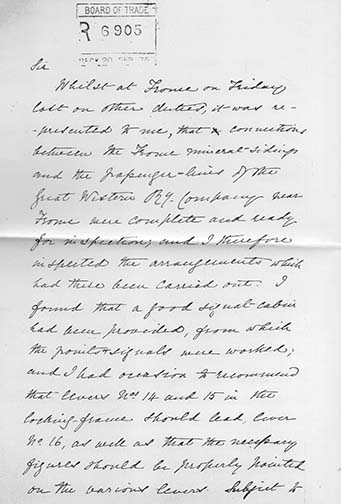 BOARD OF TRADE
R 6905
Sir
Whilst at Frome on Friday
last on other duties, it was re-
-presented to me, that connections
between the Frome mineral-sidings
and the passenger-lines of the
Great Western Ry. Company near
Frome were complete and ready
for inspection; and I therefore
inspected the arrangements which
had there been carried out. I
found that a good signal-cabin
had been provided, from which
the points & signals were worked;
and I had occasion to recommend
that levers Nos 14 and 15 in the
locking frame should lead lever
No 16, as well as that the necessary
figures should be properly painted
on the various levers. Subject to